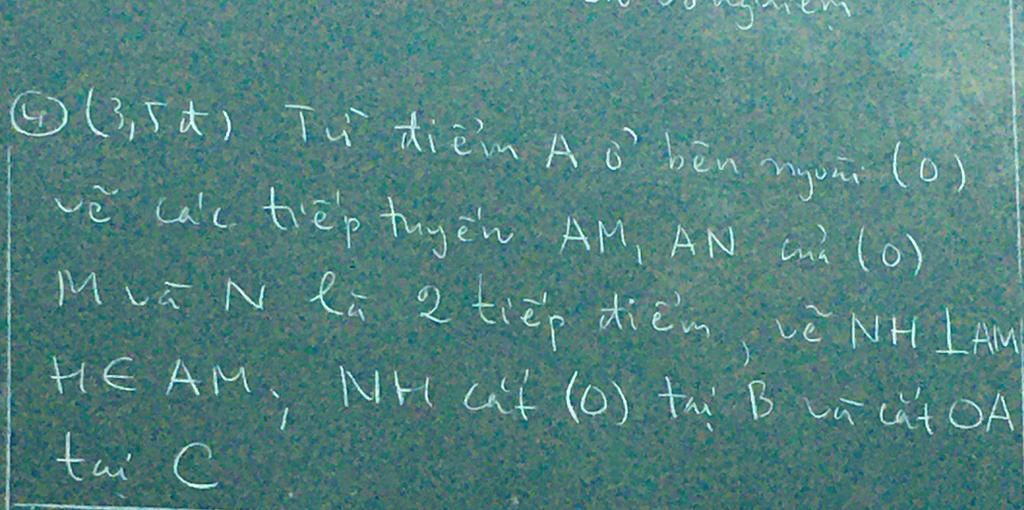 vô nghiệm
④ (3,5đ) Từ điểm A ở bên ngoài (O)
vẽ các tiếp tuyến AM, AN của (O)
M và N là 2 tiếp điểm, vẽ NH ⊥ AM
H ∈ AM; NH cắt (O) tại B và cắt OA
tại C